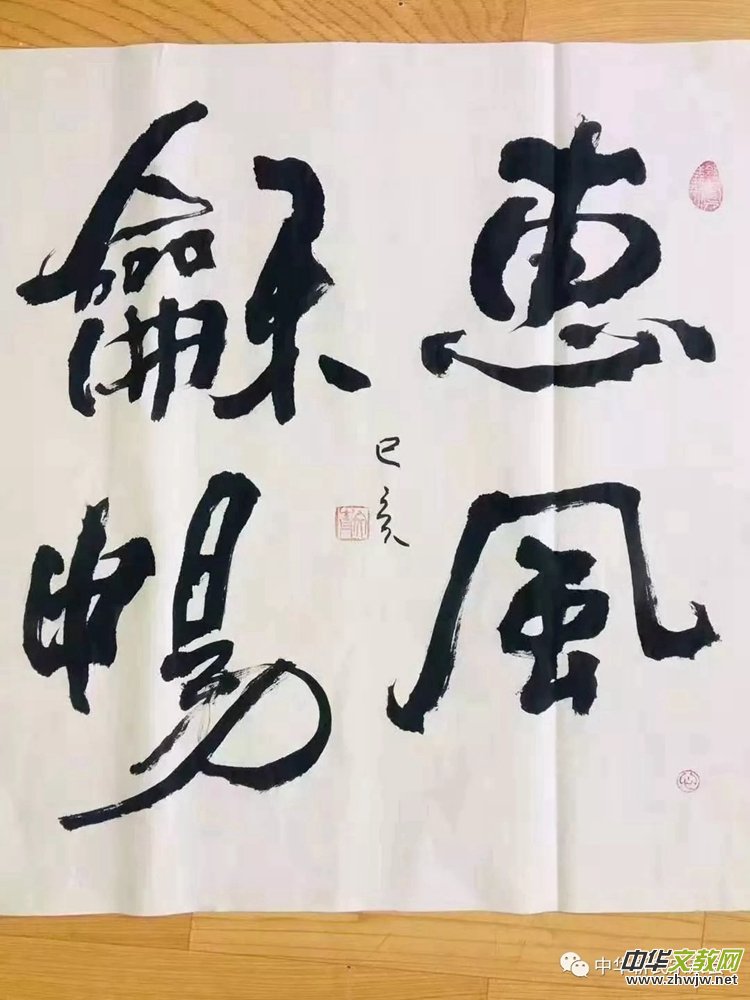 惠風
龢暢
己亥
中华文教网
www.zhwjw.net